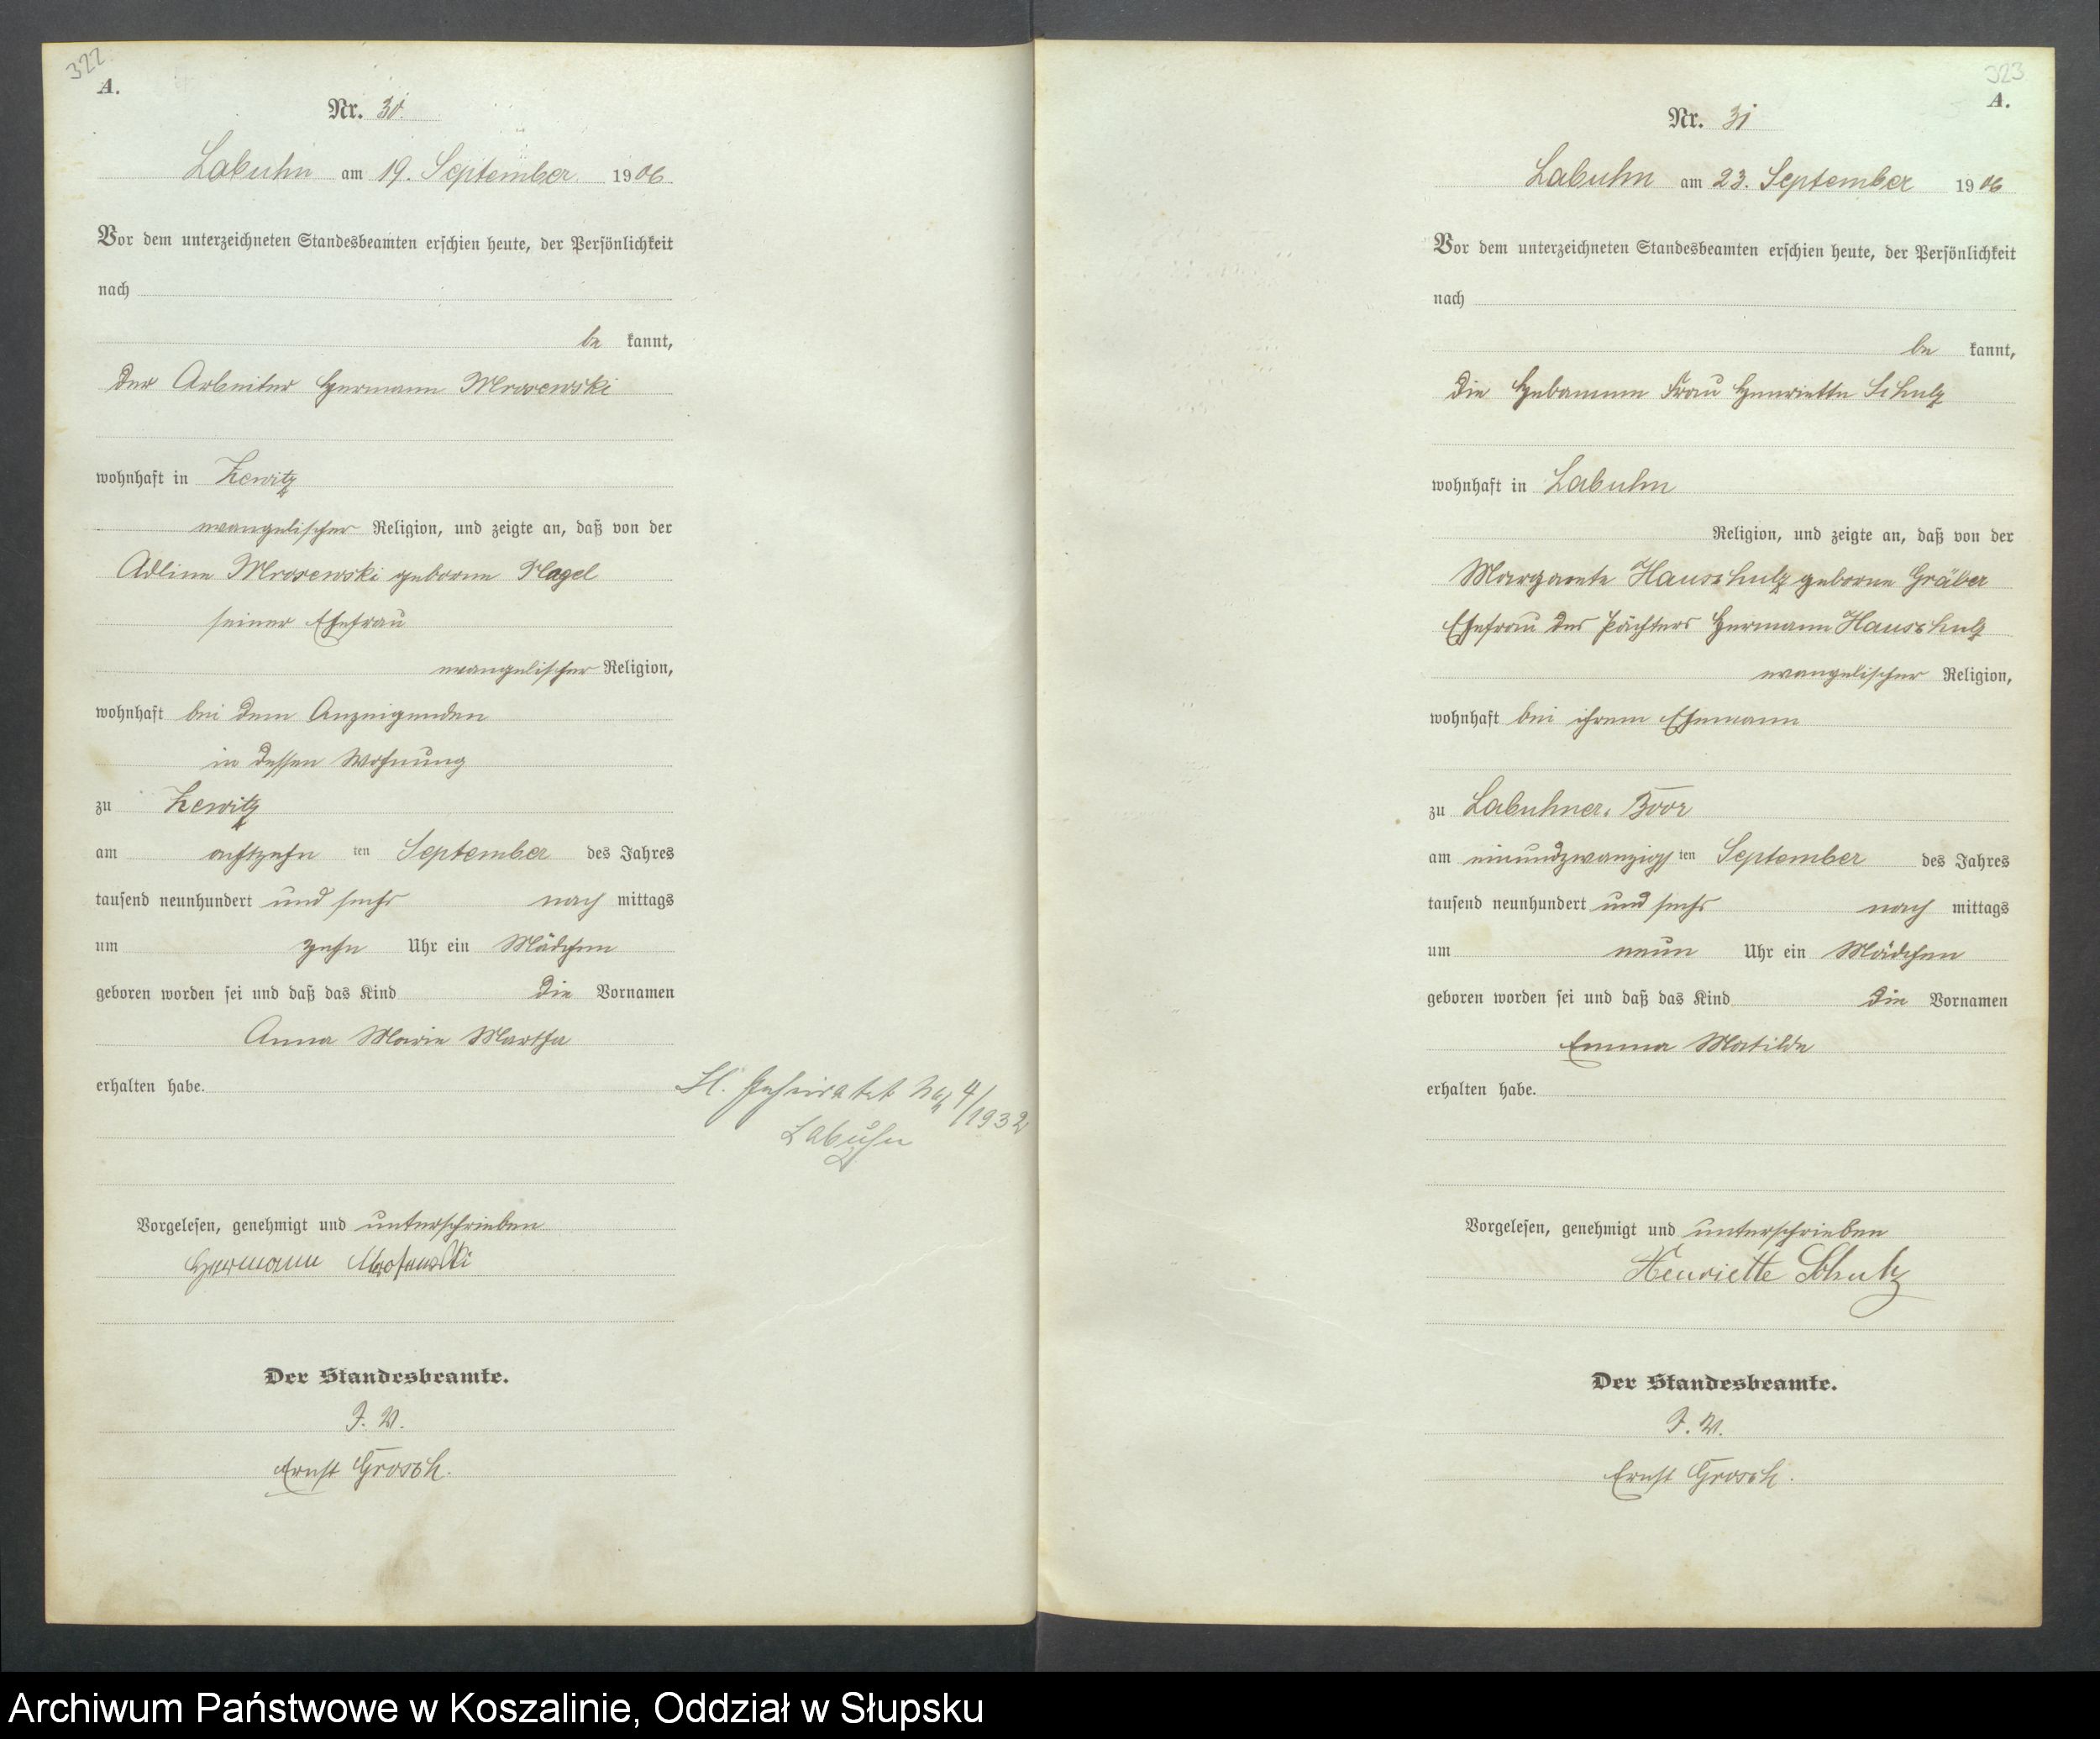 322
A.
Nr. 30.
Labuhn am 19. September 1906
Vor dem unterzeichneten Standesbeamten erschien heute, der Persönlichkeit
nach
be kannt,
der Arbeiter Hermann Mrosewski
wohnhaft in Zewitz
evangelischer Religion, und zeigte an, daß von der
Adline Mrosewski geborne Nagel
seiner Ehefrau
evangelischer Religion,
wohnhaft bei dem Anzeigenden
in dessen Wohnung
zu Zewitz
am achtzehn ten September des Jahres
tausend neunhundert und sechs nach mittags
um zehn Uhr ein Mädchen
geboren worden sei und daß das Kind die Vornamen
Anna Marie Martha
erhalten habe.
Geheiratet No 4/1932
Labuhn
Vorgelesen, genehmigt und unterschrieben
Hermann Mrosewski
Der Standesbeamte.
J. V.
Ernst Grosch.
323
A.
Nr. 31
Labuhn am 23. September 1906
Vor dem unterzeichneten Standesbeamten erschien heute, der Persönlichkeit
nach
be kannt,
die Hebamme Frau Henriette Schulz
wohnhaft in Labuhn
Religion, und zeigte an, daß von der
Margarete Hauschulz geborne Gräber
Ehefrau des Pächters Hermann Hauschulz
evangelischer Religion,
wohnhaft bei ihrem Ehemann
zu Labuhner
am einundzwanzigs ten September des Jahres
tausend neunhundert und sechs nach mittags
um neun Uhr ein Mädchen
geboren worden sei und daß das Kind die Vornamen
Emma Matilde
erhalten habe.
Vorgelesen, genehmigt und unterschrieben
Henriette Schulz
Der Standesbeamte.
J. V.
Ernst Grosch.
Archiwum Państwowe w Koszalinie, Oddział w Słupsku